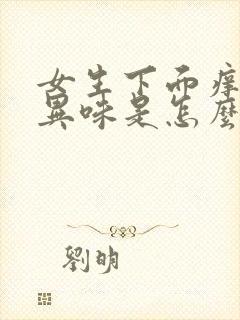 女生下面痒
異味是怎麼
劉明